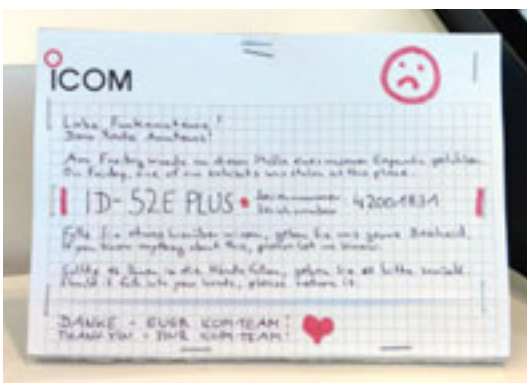 iCOM
Liebe Funkamateure!
Dear Radio Amateurs!
Am Freitag wurde an dieser Stelle eines unserer Exponate gestohlen.
On Friday, one of our exhibits was stolen at this place.
ID-52E PLUS • Seriennummer
Serial number 42001831
Falls Sie etwas darüber wissen, geben Sie uns gerne Bescheid.
If you know anything about this, please let us know.
Sollte es Ihnen in die Hände fallen, geben Sie es bitte zurück.
Should it fall into your hands, please return it.
DANKE - EUER ICOM-TEAM!
THANK YOU - YOUR ICOM-TEAM!